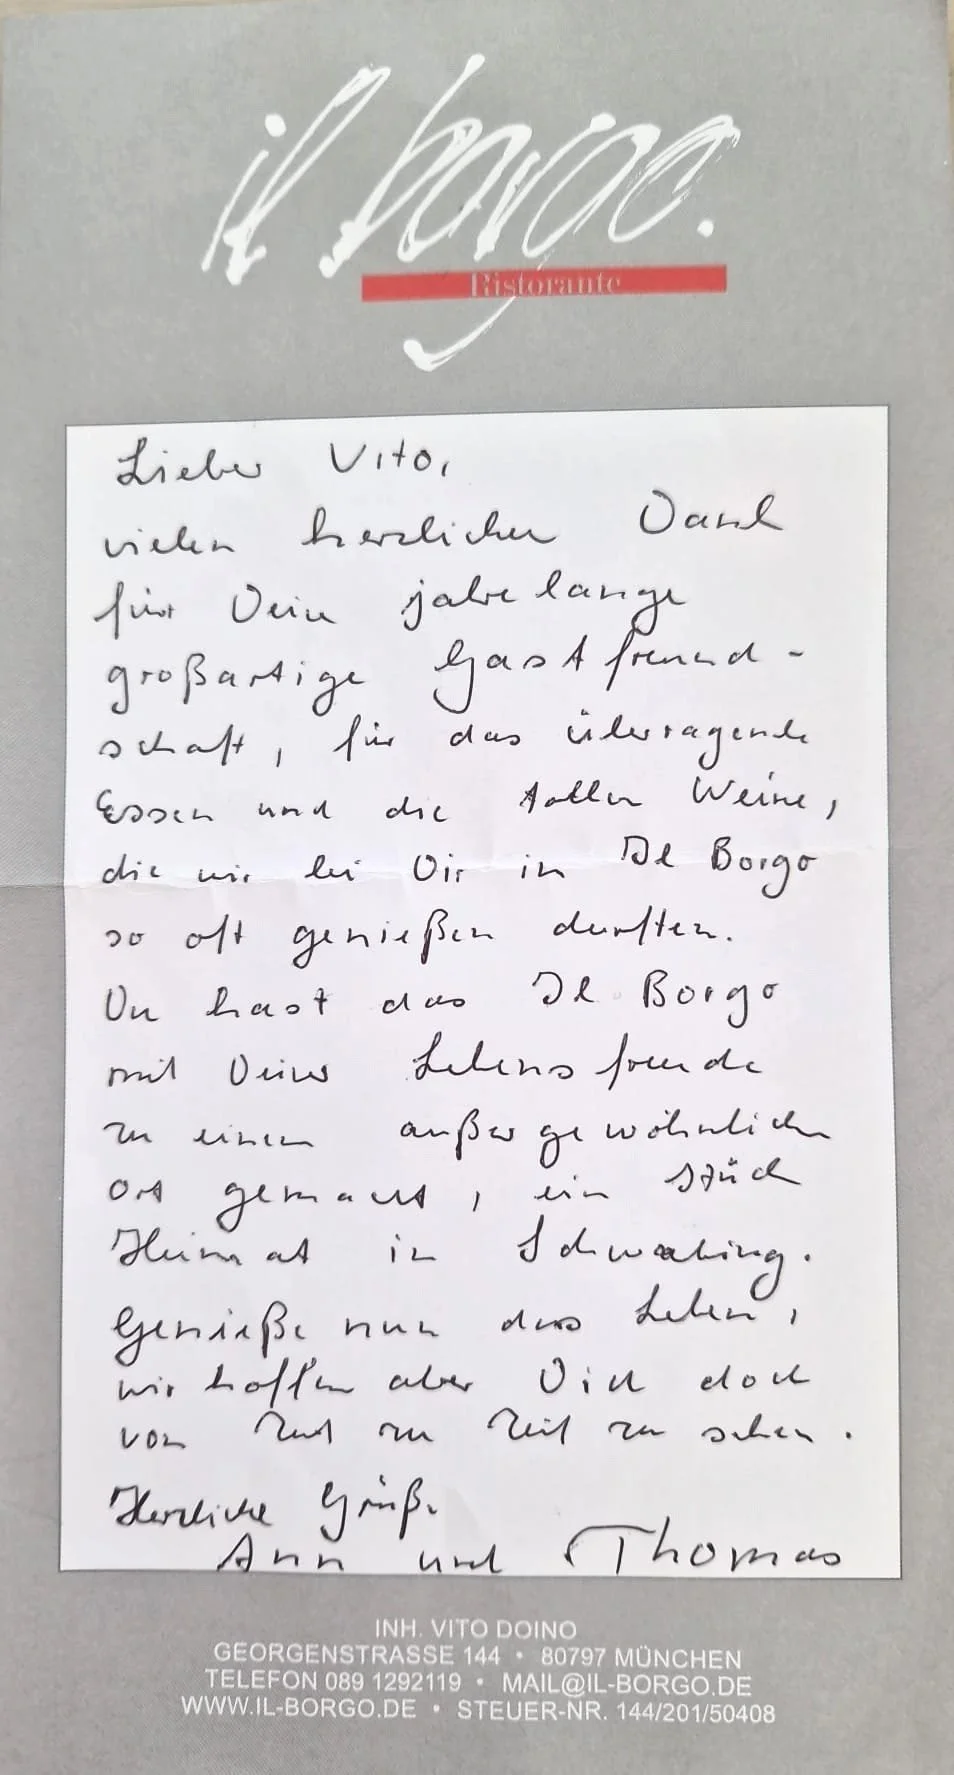 il borgo.
Ristorante
Lieber Vito,
vielen herzlichen Dank
für Deine jahrelange
großartige Gastfreund-
schaft, für das überragende
Essen und die tollen Weine,
die wir bei Dir in Il Borgo
so oft genießen durften.
Du hast das Il Borgo
mit Deiner Lebensfreude
zu einem außergewöhnlichen
Ort gemacht, ein Stück
Heimat in Schwabing.
Genieße nun das Leben,
wir hoffen aber Dich doch
von Zeit zu Zeit zu sehen.
Herzliche Grüße
Ann und Thomas
INH. VITO DOINO
GEORGENSTRASSE 144 • 80797 MÜNCHEN
TELEFON 089 1292119 • MAIL@IL-BORGO.DE
WWW.IL-BORGO.DE • STEUER-NR. 144/201/50408